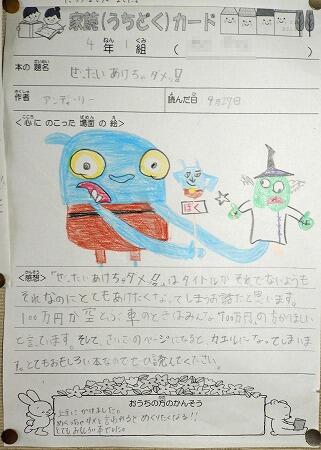 家読(うちどく)カード
4年1組(
ねん くみ
本の題名
だいめい
ぜったいあけちゃダメッ!!
作者
さくしゃ
アンディ・リー
読んだ日
9月27日
<心にのこった場面の絵>
こころ ばめん え
ぼく
<感想>
かんそう
「ぜったいあけちゃダメッ!!」はタイトルが
それなのにとてもあけたくなってしまうお話だと思います。
100万円か空とぶ車のときはみんな100万円の方がほしい
と言います。そして、さいごのページになると、カエルになってしまいま
す。とてもおもしろい本なのでぜひ読んでください。
おうちの方のかんそう
かた
上手にかけました。
めくっちゃダメと言われると めくりたくなる!!
とてもおもしろい本でした。